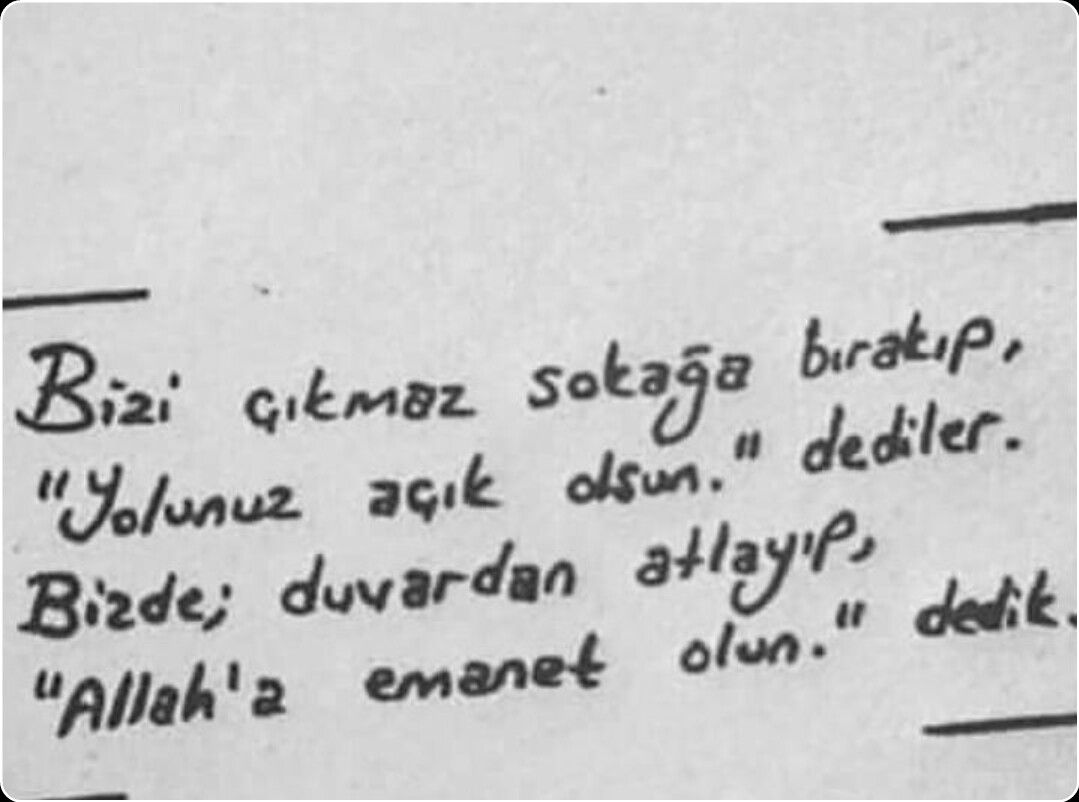 Bizi çıkmaz sokağa bırakıp,
"Yolunuz açık olsun." dediler.
Bizde; duvardan atlayıp,
"Allah'a emanet olun." dedik.